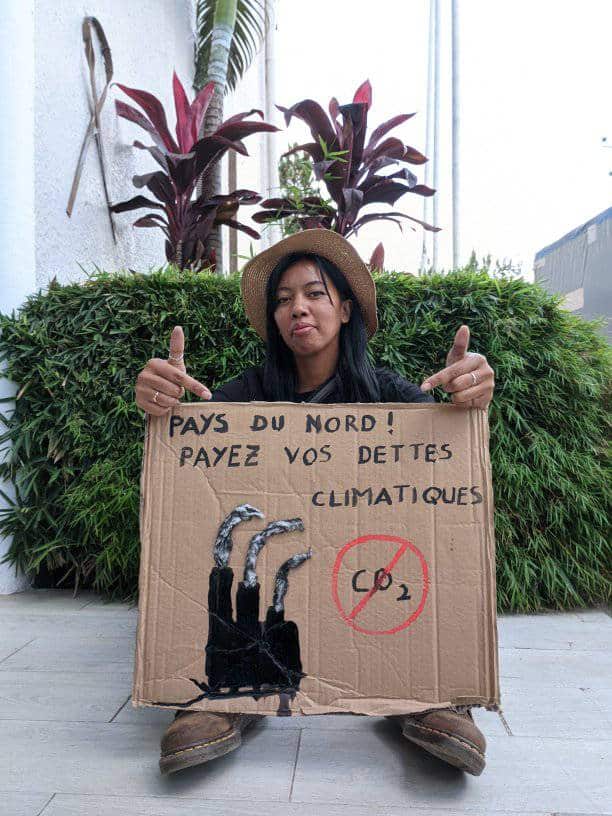 PAYS DU NORD!
PAYEZ VOS DETTES
CLIMATIQUES
CO₂